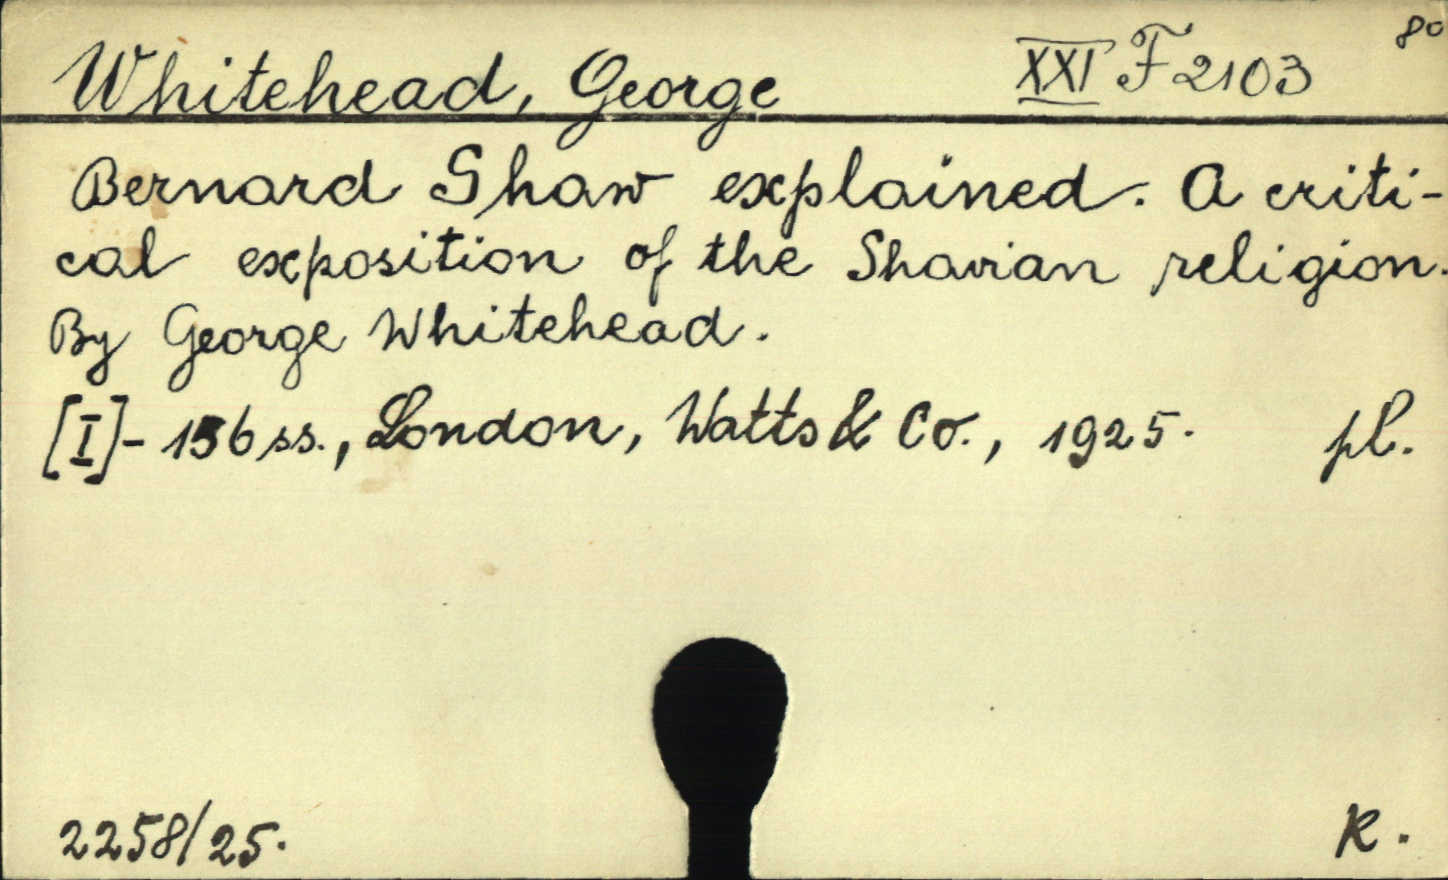 Whitehead, George XXI F 2103 8°
Bernard Shaw explained. A criti-
cal exposition of the Shavian religion.
By George Whitehead.
[I]-156 ss., London, Watts & Co., 1925. pl.
2258/25. K.